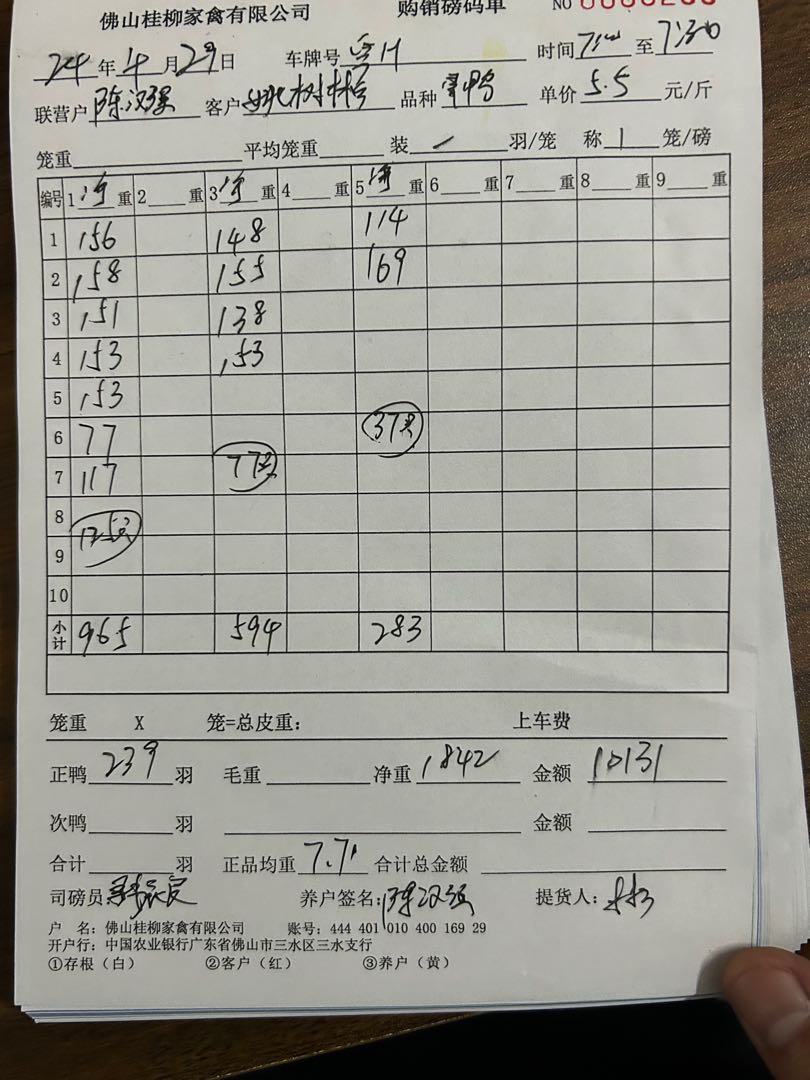 佛山桂柳家禽有限公司 购销磅码单 NO
24年4月29日 车牌号粤H 时间7:00至7:30
联营户陈汉强 客户姚树 品种 单价5.5元/斤
笼重 平均笼重 装 / 羽/笼 称1笼/磅
编号 1净重 2 重 3净重 4 重 5净重 6 重 7 重 8 重 9 重
1 156 148 114
2 158 155 169
3 151 138
4 153 153
5 153
6 77 37只
7 117 77只
8 125只
9
10
小计 965 594 283
笼重 X 笼=总皮重: 上车费
正鸭239羽 毛重 净重1842 金额10131
次鸭 羽 金额
合计 羽 正品均重7.71 合计总金额
司磅员 养户签名:陈汉强 提货人:
户 名:佛山桂柳家禽有限公司 账号:444 401 010 400 169 29
开户行:中国农业银行广东省佛山市三水区三水支行
①存根(白) ②客户(红) ③养户(黄)